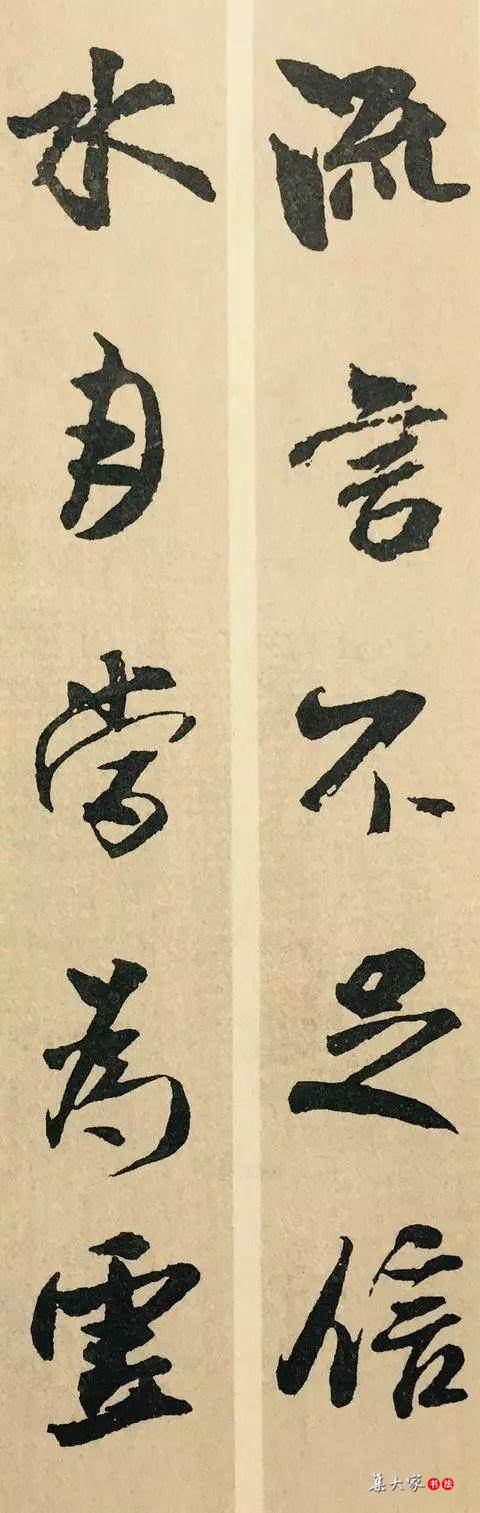 流言不足信
水月常為霊
集大家书法